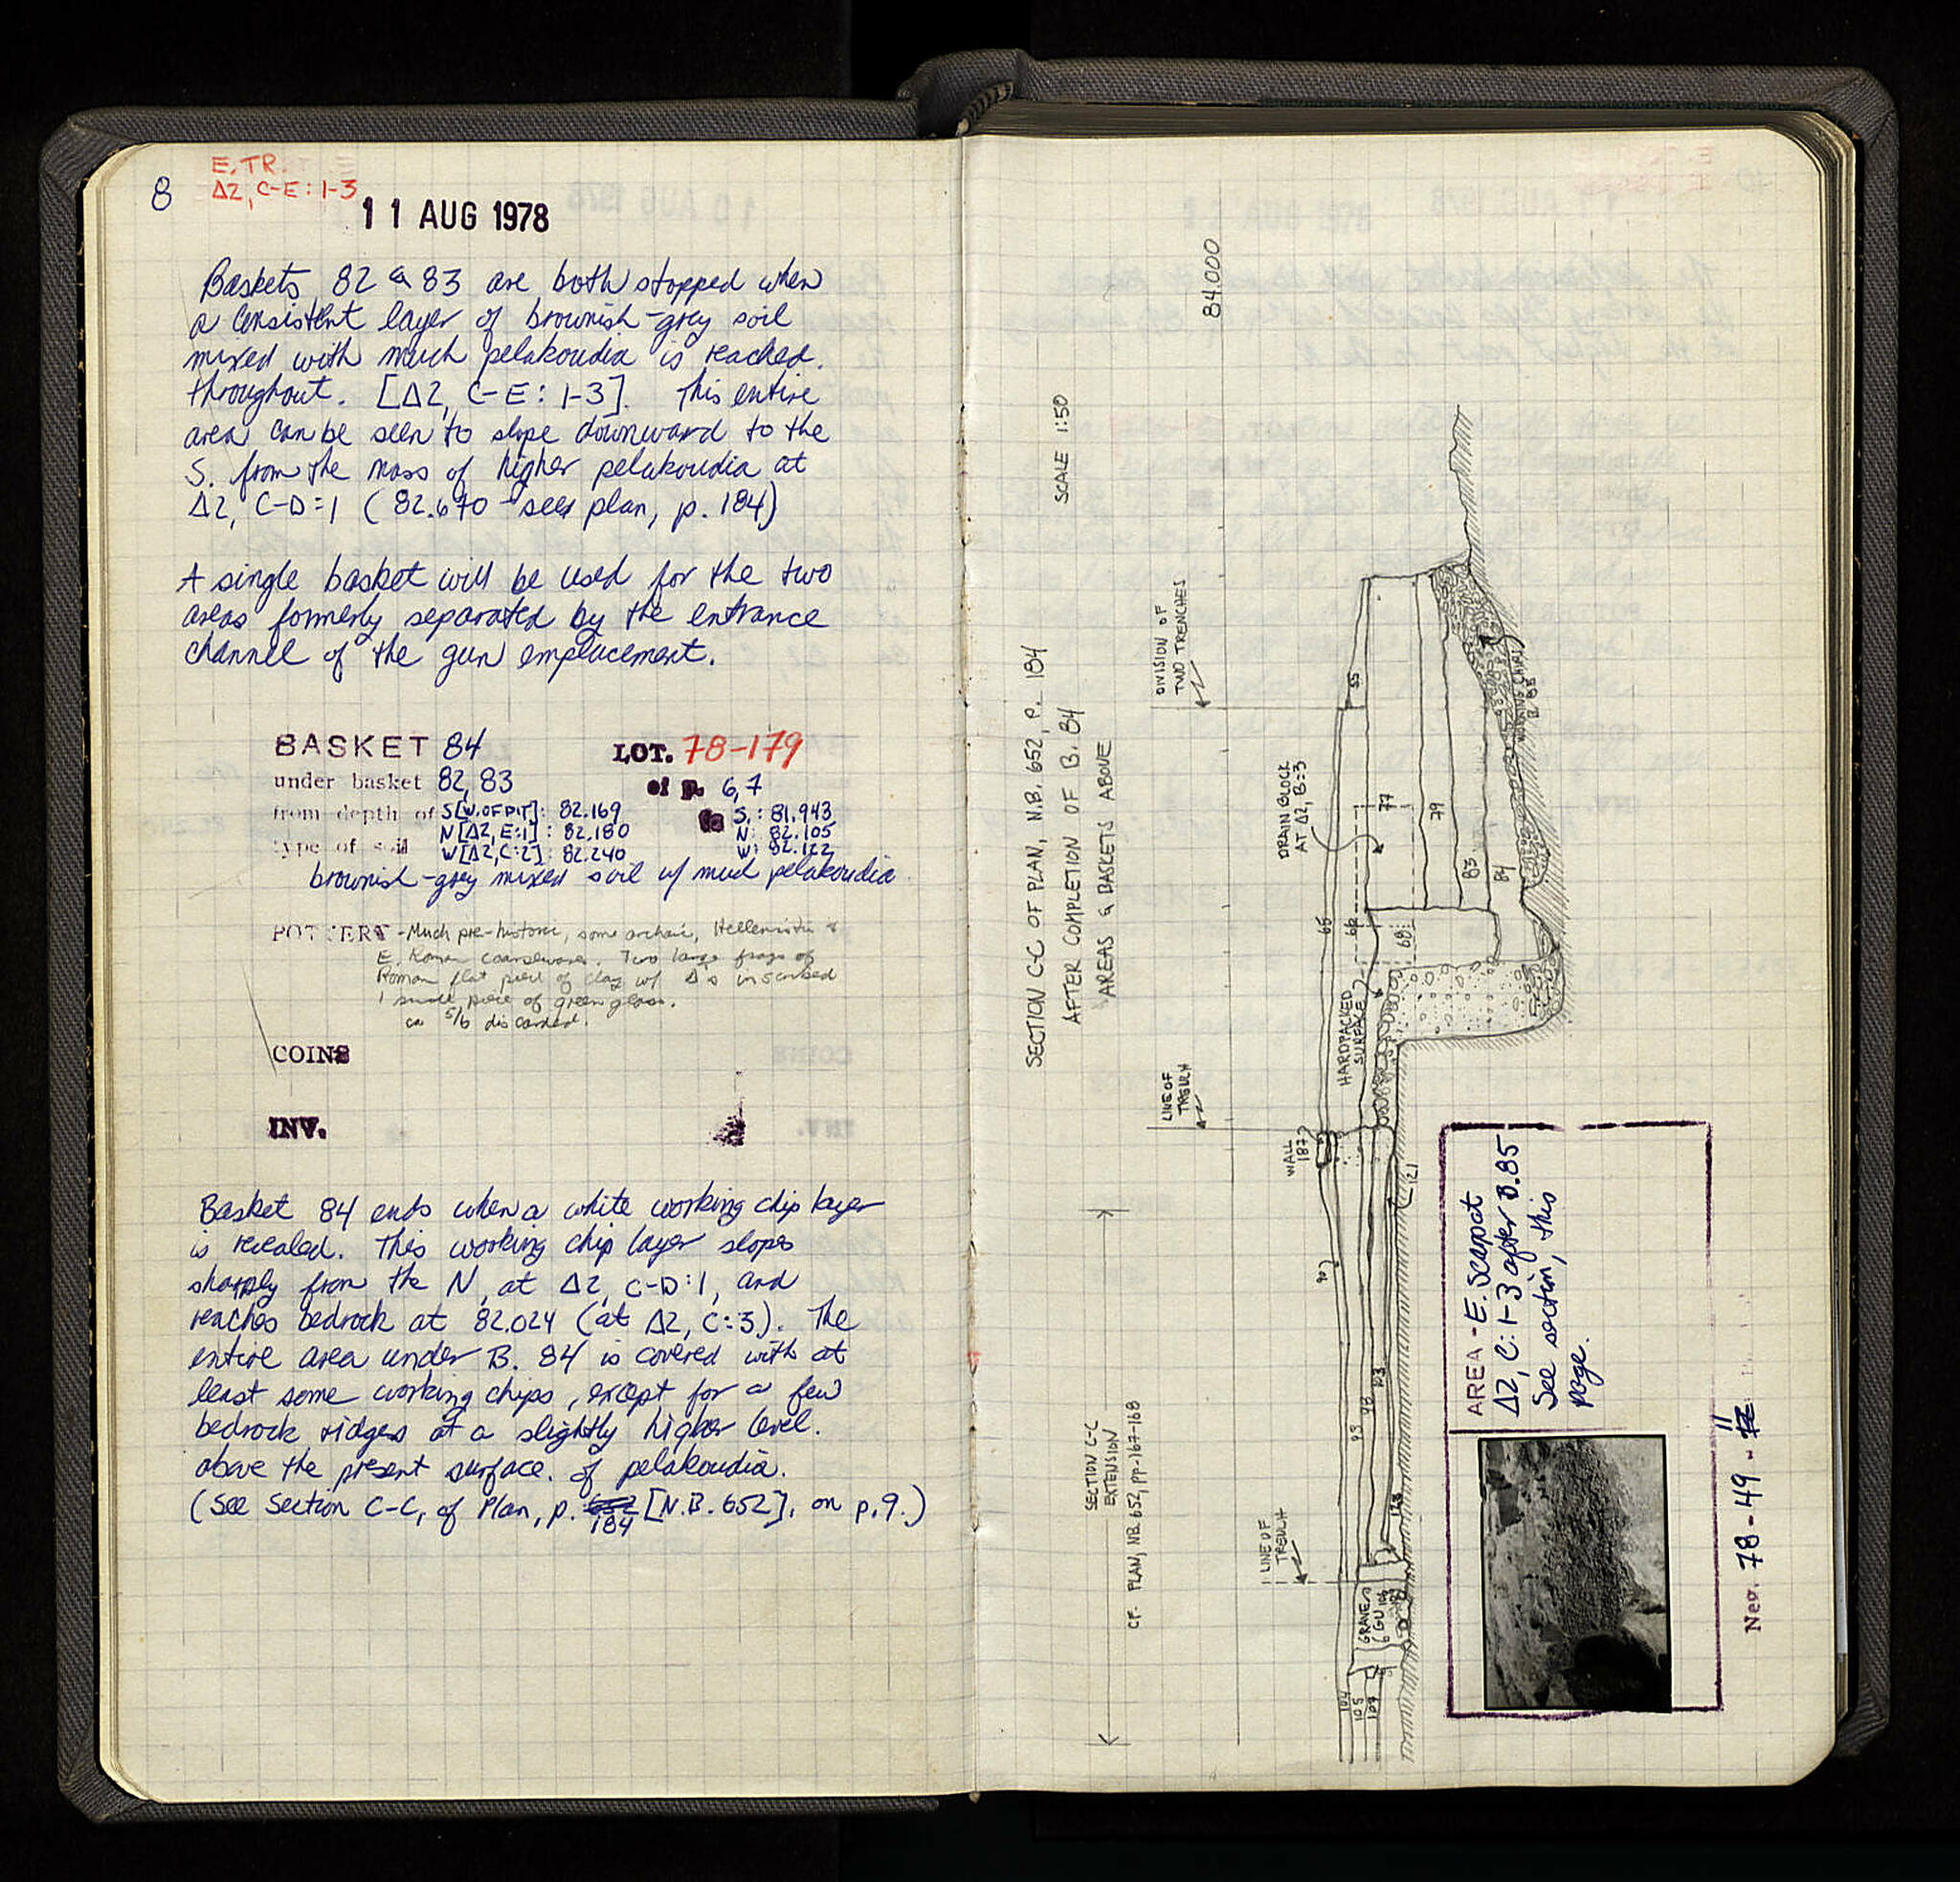 8
E. TR.
Δ2, C-E: 1-3
11 AUG 1978
Baskets 82 & 83 are both stopped when
a consistent layer of brownish-grey soil
mixed with much pelakoudia is reached.
throughout. [Δ2, C-E: 1-3]. This entire
area can be seen to slope downward to the
S. from the mass of higher pelakoudia at
Δ2, C-D:1 (82.670 - see plan, p. 184)
A single basket will be used for the two
areas formerly separated by the entrance
channel of the gun emplacement.
BASKET 84 LOT. 78-179
under basket 82, 83 of p. 6, 7
from depth of S[W. OF PIT]: 82.169 to S.: 81.943
N[Δ2, E:1]: 82.180 N: 82.105
type of soil W[Δ2, C:2]: 82.240 W: 82.122
brownish-grey mixed soil w/ much pelakoudia
POTTERY - Much pre-historic, some archaic, Hellenistic &
E. Roman coarsewares. Two large frags of
Roman flat piece of clay w/ Δ's inscribed
1 small piece of green glass.
ca 5/6 discarded.
COINS
INV.
Basket 84 ends when a white working chip layer
is revealed. This working chip layer slopes
sharply from the N, at Δ2, C-D:1, and
reaches bedrock at 82.024 (at Δ2, C:3). The
entire area under B. 84 is covered with at
least some working chips, except for a few
bedrock ridges at a slightly higher level.
above the present surface. of pelakoudia.
(See Section C-C, of Plan, p. 184 [N.B. 652], on p. 9.)
SECTION C-C OF PLAN, N.B. 652, P. 184
SCALE 1:50
AFTER COMPLETION OF B. 84
AREAS & BASKETS ABOVE
84.000
DIVISION OF
TWO TRENCHES
LINE OF
TRENCH
SECTION C-C
EXTENSION
CF. PLAN, NB. 652, pp. 167-168
LINE OF
TRENCH
DRAIN BLOCK
AT Δ2, B:3
WALL
187
HARDPACKED
SURFACE
55
65
66
68
77
79
83
84
WORKING CHIPS
90
93
98
103
121
128
GRAVE
104
105
107
AREA - E. Scarp at
Δ2, C: 1-3 after B. 85
See section, this
page.
Neg. 78-49-11